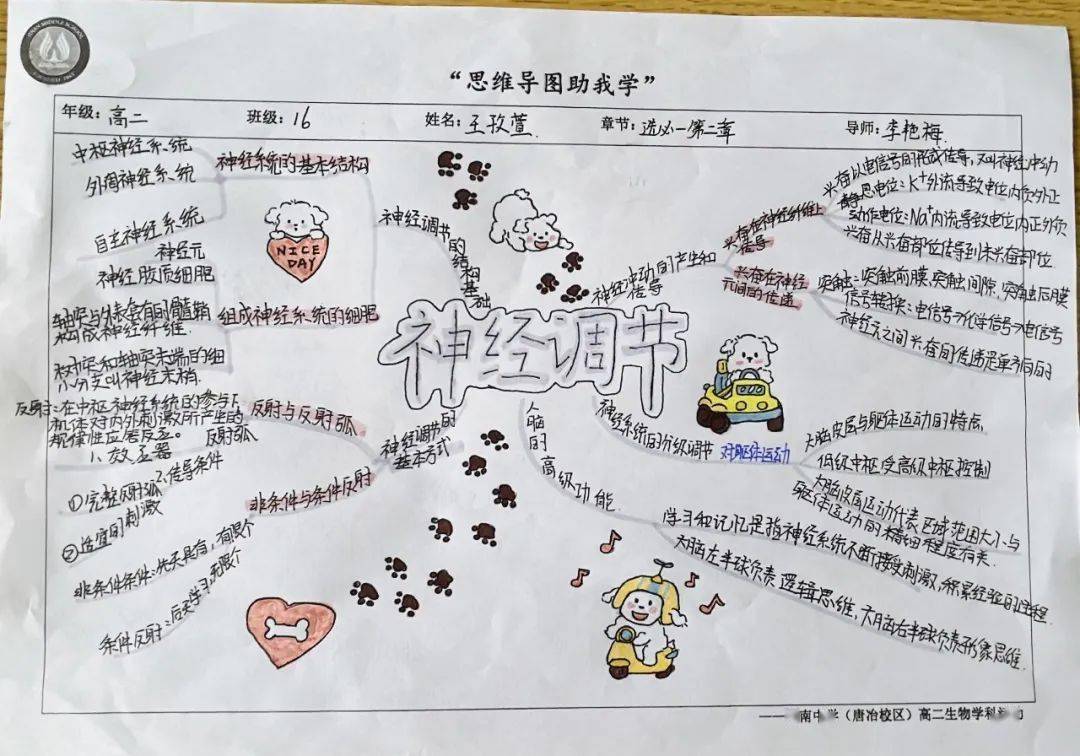 “思维导图助我学”
年级：高二 班级：16 姓名：王孜萱 章节：选必一第二章 导师：李艳梅
神经调节
神经调节的结构基础
神经系统的基本结构
中枢神经系统
外周神经系统
自主神经系统
组成神经系统的细胞
神经元
神经胶质细胞
轴突与外表套有的髓鞘
构成神经纤维.
树突和轴突末端的细
小分支叫神经末梢.
NICE
DAY
神经调节的
基本方式
反射与反射弧
反射：在中枢神经系统的参与下
机体对内外刺激所产生的
规律性应答反应。
反射弧
非条件与条件反射
①完整反射弧
传导条件
②适宜的刺激
非条件条件：先天具有，有限个
条件反射：后天学习，无限个
神经冲动的产生和
传导
兴奋在神经纤维上
传导
兴奋以电信号的形式传导，又叫神经冲动
静息电位：K⁺外流导致电位内负外正
动作电位：Na⁺内流导致电位内正外负
兴奋从兴奋部位传导到未兴奋部位.
兴奋在神经
元间的传递
突触：突触前膜，突触间隙，突触后膜
信号转换：电信号→化学信号→电信号
神经元之间兴奋的传递是单方向的
神经系统的分级调节
对躯体运动
大脑皮层与躯体运动的特点
低级中枢受高级中枢控制
大脑皮层运动代表区域范围大小与
躯体运动的精细程度有关.
人脑的高级功能
学习和记忆是指神经系统不断接受刺激，积累经验的过程
大脑左半球负责逻辑思维，大脑右半球负责形象思维.
南中学（唐冶校区）高二生物学科